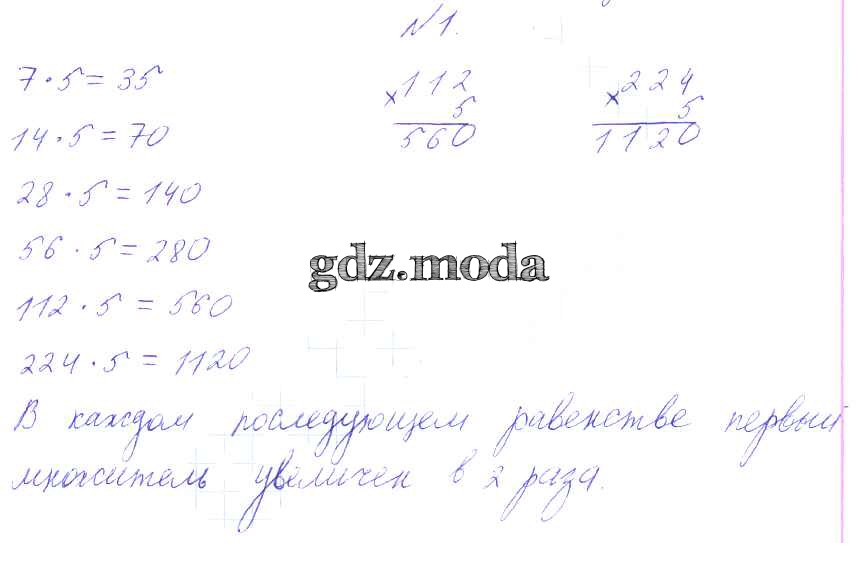 №1.
7·5=35
14·5=70
28·5=140
56·5=280
112·5=560
224·5=1120
×112
5
560
×224
5
1120
gdz.moda
В каждом последующем равенстве первый
множитель увеличен в 2 раза.